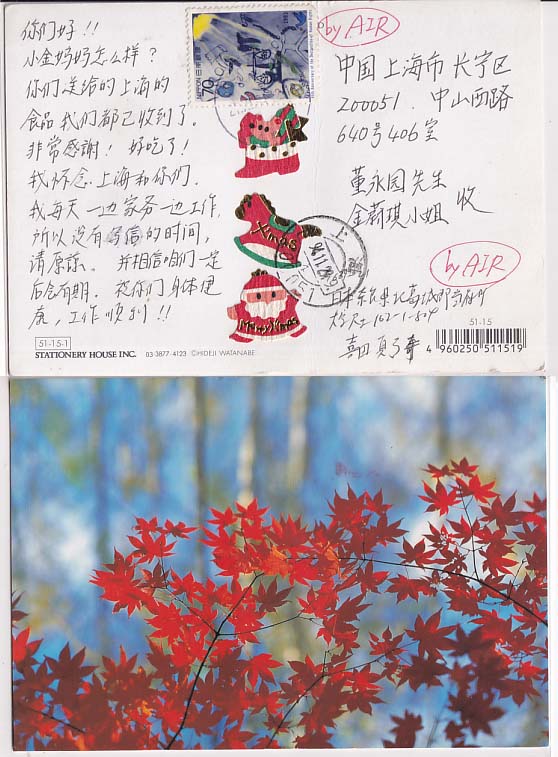 你们好!!
小金妈妈怎么样?
你们送给的上海的
食品我们都已收到了.
非常感謝! 好吃了!
我怀念.上海和你们.
我每天一边家务一边工作,
所以没有写信的时间,
请原谅。并相信咱们是
后会有期. 祝你们身体健
康,工作顺利!!
51-15-1
STATIONERY HOUSE INC. 03 3877-4123 ©HIDEJI WATANABE
NIPPON 日本郵便
70
Xmas
Merry Xmas
by AIR
中国上海市长宁区
200051. 中山西路
640号406室
董永园先生
金莉琪小姐 收
by AIR
51-15
4 960250 511519